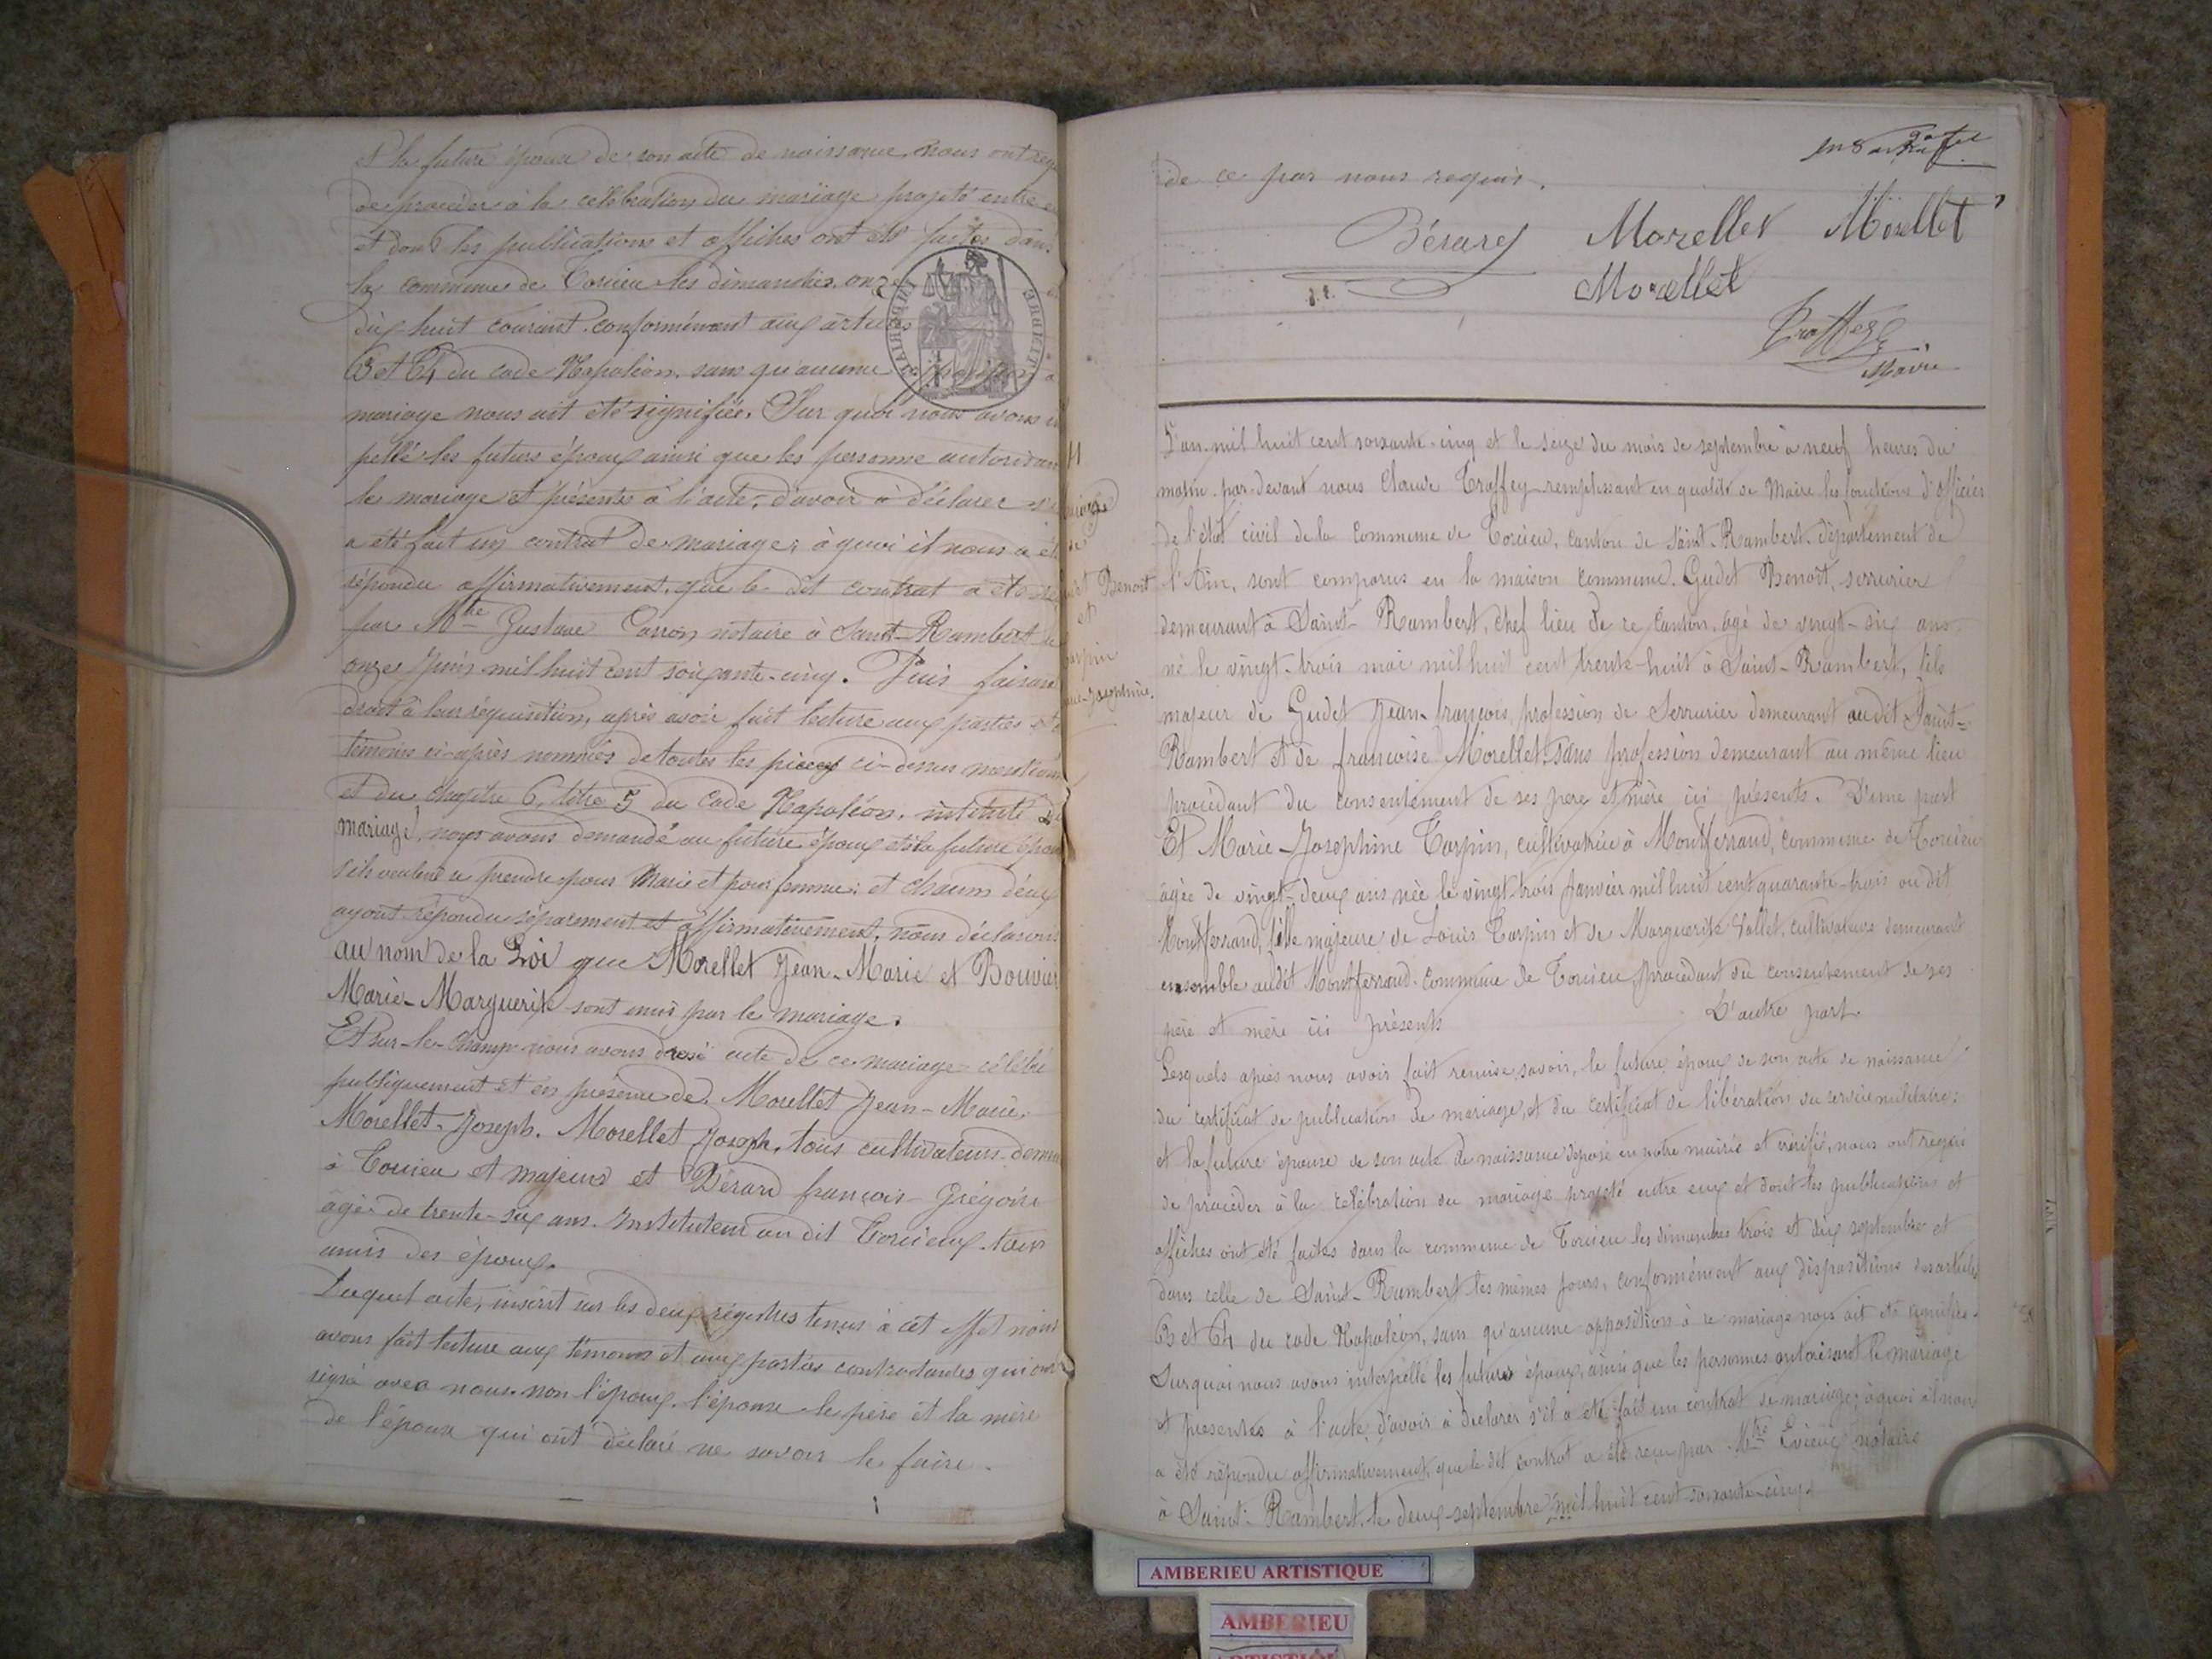 et la future épouse de son acte de naissance, nous ont
de procéder à la célébration du mariage projeté entre
et dont les publications et affiches ont été faites dans
la commune de Torcieu les dimanches onze
dix huit courant. conformément aux articles
63 et 64 du code Napoléon. sans qu'aucune
mariage nous ait été signifiée. Sur quoi nous avons
pellé les futurs époux ainsi que les personne autorisan
le mariage et présentes à l'acte, d'avoir à déclarer s'i
a été fait un contrat de mariage; à quoi il nous a ét
répondu affirmativement, que le dit contrat a été
par Mtre Gustave Carron notaire à Saint-Rambert le
onze juin mil huit cent soixante-cinq. Puis faisant
droit à leur réquisition, après avoir fait lecture aux parties et
témoins ci-après nommés de toutes les pièces ci-dessus mention
et du chapitre 6, titre 5 du Code Napoléon, intitulé du
mariage, nous avons demandé au future époux et à la future épou
s'ils veulent se prendre pour Marie et pour femme; et chacun d'eux
ayant répondu séparement et affirmativement, nous déclarons
au nom de la Loi que Morellet Jean-Marie et Bouvier
Marie-Marguerite sont unis par le mariage.
Et sur-le-champ nous avons dressé acte de ce mariage célébré
publiquement et en présence de Morellet Jean-Marie,
Morellet-Joseph. Morellet Joseph, tous cultivateurs dem
à Torcieu et majeurs et Bérard françois-Grégoire
âgé de trente-six ans. Instituteur au dit Torcieux. tous
amis des époux.
Duquel acte, inscrit sur les deux régistres tenus à cet effet nous
avons fait lecture aux témoins et aux parties contractantes qui ont
signé avec nous. non l'époux. l'épouse le père et la mère
de l'épouse qui ont déclaré ne savoir le faire.
de ce par nous requis.
Bérard Morellet Morellet
Morellet
Traffey
Maire
11
Benoit
et
L'an mil huit cent soixante-cinq et le seize du mois de septembre à neuf heures du
matin. par-devant nous Claude Traffey remplissant en qualité de Maire les fonctions d'officier
de l'état civil de la commune de Torcieu, canton de Saint-Rambert. département de
l'Ain, sont comparus en la maison commune. Gudet Benoît, serrurier
demeurant à Saint-Rambert, chef lieu de ce canton, agé de vingt-six ans
né le vingt-trois mai mil huit cent trente-huit à Saint-Rambert, fils
majeur de Gudet Jean-françois, profession de Serrurier demeurant au dit Saint-
Rambert et de françoise Morellet, sans profession demeurant au même lieu
procédant du consentement de ses père et mère ici présents. D'une part
Et Marie-Josephine Tarpin, cultivatrice à Montferrand, commune de Torcieu
agée de vingt-deux ans née le vingt-trois Janvier mil huit cent quarante-trois au dit
Montferrand, fille majeure de Louis Tarpin et de Marguerite Vallet, cultivateurs demeurant
ensemble audit Montferrand. commune de Torcieu, procédant du consentement de ses
père et mère ici présents D'autre part.
Lesquels après nous avoir fait remise savoir, le future époux de son acte de naissance
du certificat de publication de mariage, et du certificat de libération du service militaire:
et la future épouse de son acte de naissance déposé en notre mairie et vérifié, nous ont requis
de procéder à la célébration du mariage projeté entre eux et dont les publications et
affiches ont été faites dans la commune de Torcieu les dimanches trois et dix septembre et
dans celle de Saint-Rambert les mêmes jours, conformément aux dispositions des articles
63 et 64 du code Napoléon, sans qu'aucune opposition à ce mariage nous ait été signifiée.
Surquoi nous avons interpellé les futurs époux, ainsi que les personnes autorisant le mariage
et présentes à l'acte, d'avoir à déclarer s'il a été fait un contrat de mariage; à quoi il nous
a été répondu affirmativement, que le dit contrat a été reçu par Mtre notaire
à Saint-Rambert, le deux septembre mil huit cent soixante-cinq.
AMBERIEU ARTISTIQUE
AMBERIEU
ARTISTIQUE